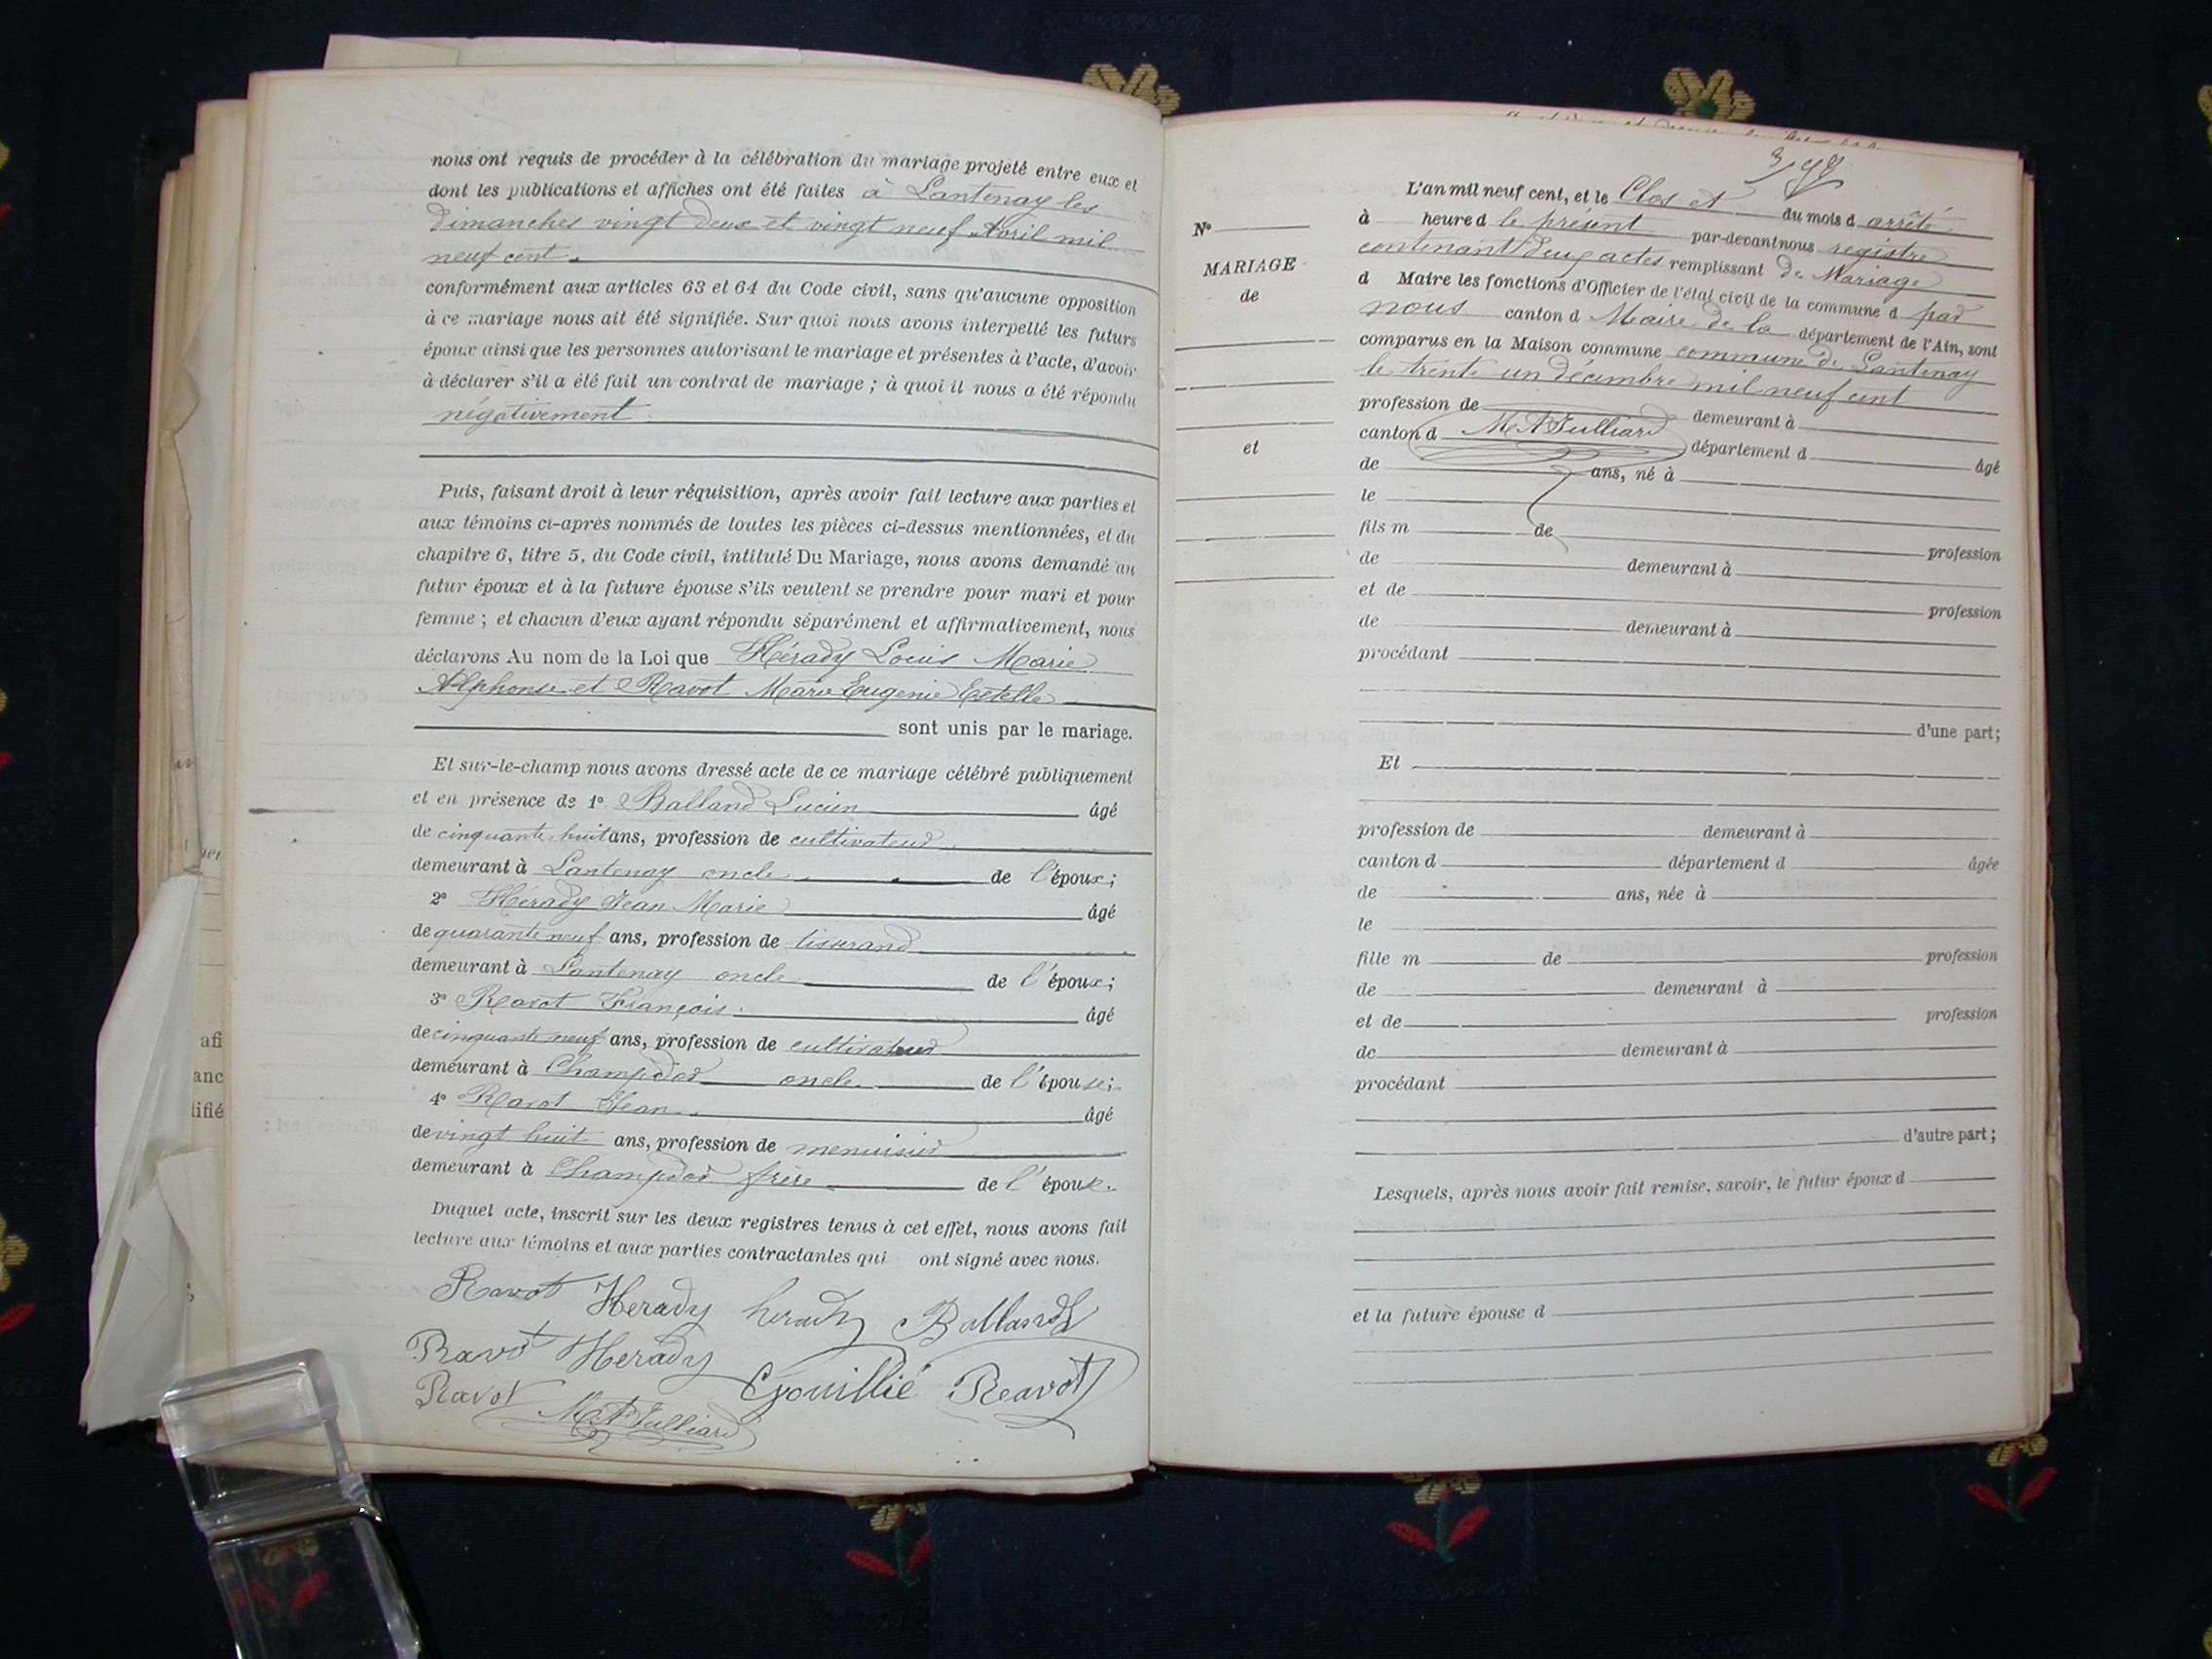 nous ont requis de procéder à la célébration du mariage projeté entre eux et
dont les publications et affiches ont été faites à Lantenay les
dimanches vingt deux et vingt neuf Avril mil
neuf cent.
conformément aux articles 63 et 64 du Code civil, sans qu'aucune opposition
à ce mariage nous ait été signifiée. Sur quoi nous avons interpellé les futurs
époux ainsi que les personnes autorisant le mariage et présentes à l'acte, d'avoir
à déclarer s'il a été fait un contrat de mariage ; à quoi il nous a été répondu
négativement.
Puis, faisant droit à leur réquisition, après avoir fait lecture aux parties et
aux témoins ci-après nommés de toutes les pièces ci-dessus mentionnées, et du
chapitre 6, titre 5, du Code civil, intitulé Du Mariage, nous avons demandé au
futur époux et à la future épouse s'ils veulent se prendre pour mari et pour
femme ; et chacun d'eux ayant répondu séparément et affirmativement, nous
déclarons Au nom de la Loi que Hérady Louis Marie
Alphonse et Ravot Marie Eugénie Estelle
sont unis par le mariage.
Et sur-le-champ nous avons dressé acte de ce mariage célébré publiquement
et en présence de 1º Balland Lucien âgé
de cinquante huit ans, profession de cultivateur
demeurant à Lantenay oncle de l'époux;
2º Hérady Jean Marie âgé
de quarante neuf ans, profession de tisserand
demeurant à Lantenay oncle de l'époux;
3º Ravot François âgé
de cinquante neuf ans, profession de cultivateur
demeurant à Champdor oncle de l'épouse;
4º Ravot Jean âgé
de vingt huit ans, profession de menuisier
demeurant à Champdor frère de l'époux.
Duquel acte, inscrit sur les deux registres tenus à cet effet, nous avons fait
lecture aux témoins et aux parties contractantes qui ont signé avec nous.
Ravot Herady herady Balland
Ravot Herady Gouillié Ravot
Ravot M A Julliard
afi
anc
lifié
L'an mil neuf cent, et le Clos et du mois d arrêté
à heure d le présent par-devant nous registre
contenant deux actes remplissant de Mariage
d Maire les fonctions d'Officier de l'état civil de la commune d par
nous canton d Maire de la département de l'Ain, sont
comparus en la Maison commune commune de Lantenay
le trente un décembre mil neuf cent
Nº
MARIAGE
de
et
profession de demeurant à
canton d M A Julliard département d âgé
de ans, né à
le
fils m de profession
de demeurant à
et de profession
de demeurant à
procédant
d'une part;
Et
profession de demeurant à
canton d département d âgée
de ans, née à
le
fille m de profession
de demeurant à
et de profession
de demeurant à
procédant
d'autre part;
Lesquels, après nous avoir fait remise, savoir, le futur époux d
et la future épouse d